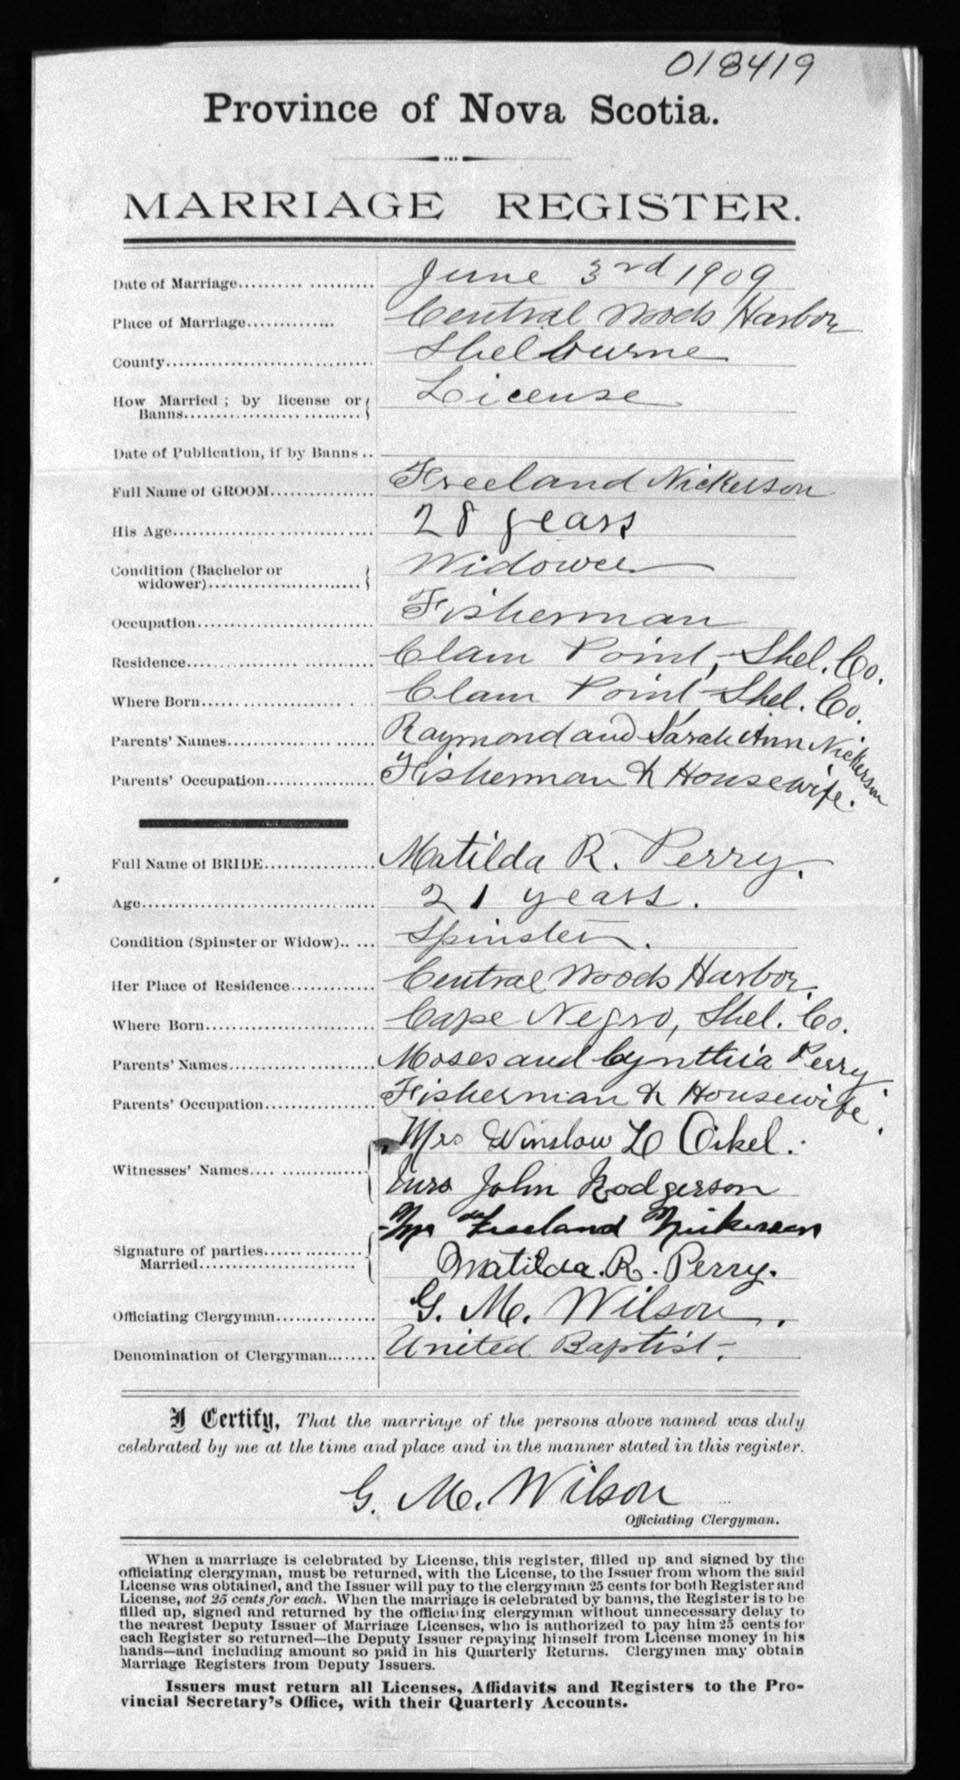 018419
Province of Nova Scotia.
MARRIAGE REGISTER.
Date of Marriage.......... June 3rd 1909
Place of Marriage............. Central Woods Harbor
County.............................. Shelburne
How Married; by license or Banns.......................... License
Date of Publication, if by Banns..
Full Name of GROOM............... Freeland Nickerson
His Age............................. 28 years
Condition (Bachelor or widower)....................... Widower
Occupation.......................... Fisherman
Residence........................... Clam Point, Shel. Co.
Where Born....................... Clam Point Shel. Co.
Parents' Names..................... Raymond and Sarah Ann Nickerson
Parents' Occupation................ Fisherman & Housewife.
Full Name of BRIDE................ Matilda R. Perry.
Age.................................. 21 years.
Condition (Spinster or Widow)..... Spinster.
Her Place of Residence............. Central Woods Harbor.
Where Born......................... Cape Negro, Shel. Co.
Parents' Names..................... Moses and Cynthia Perry
Parents' Occupation................ Fisherman & Housewife.
Mrs Winslow
Witnesses' Names....................
Mrs John Rodgerson
Mr Freeland Nickerson
Signature of parties Married.......................
Matilda. R. Perry.
Officiating Clergyman............... G. M. Wilson.
Denomination of Clergyman........ United Baptist.
I Certify, That the marriage of the persons above named was duly
celebrated by me at the time and place and in the manner stated in this register.
G. M. Wilson
Officiating Clergyman.
When a marriage is celebrated by License, this register, filled up and signed by the
officiating clergyman, must be returned, with the License, to the Issuer from whom the said
License was obtained, and the Issuer will pay to the clergyman 25 cents for both Register and
License, not 25 cents for each. When the marriage is celebrated by banns, the Register is to be
filled up, signed and returned by the officiating clergyman without unnecessary delay to
the nearest Deputy Issuer of Marriage Licenses, who is authorized to pay him 25 cents for
each Register so returned—the Deputy Issuer repaying himself from License money in his
hands—and including amount so paid in his Quarterly Returns. Clergymen may obtain
Marriage Registers from Deputy Issuers.
Issuers must return all Licenses, Affidavits and Registers to the Pro-
vincial Secretary's Office, with their Quarterly Accounts.